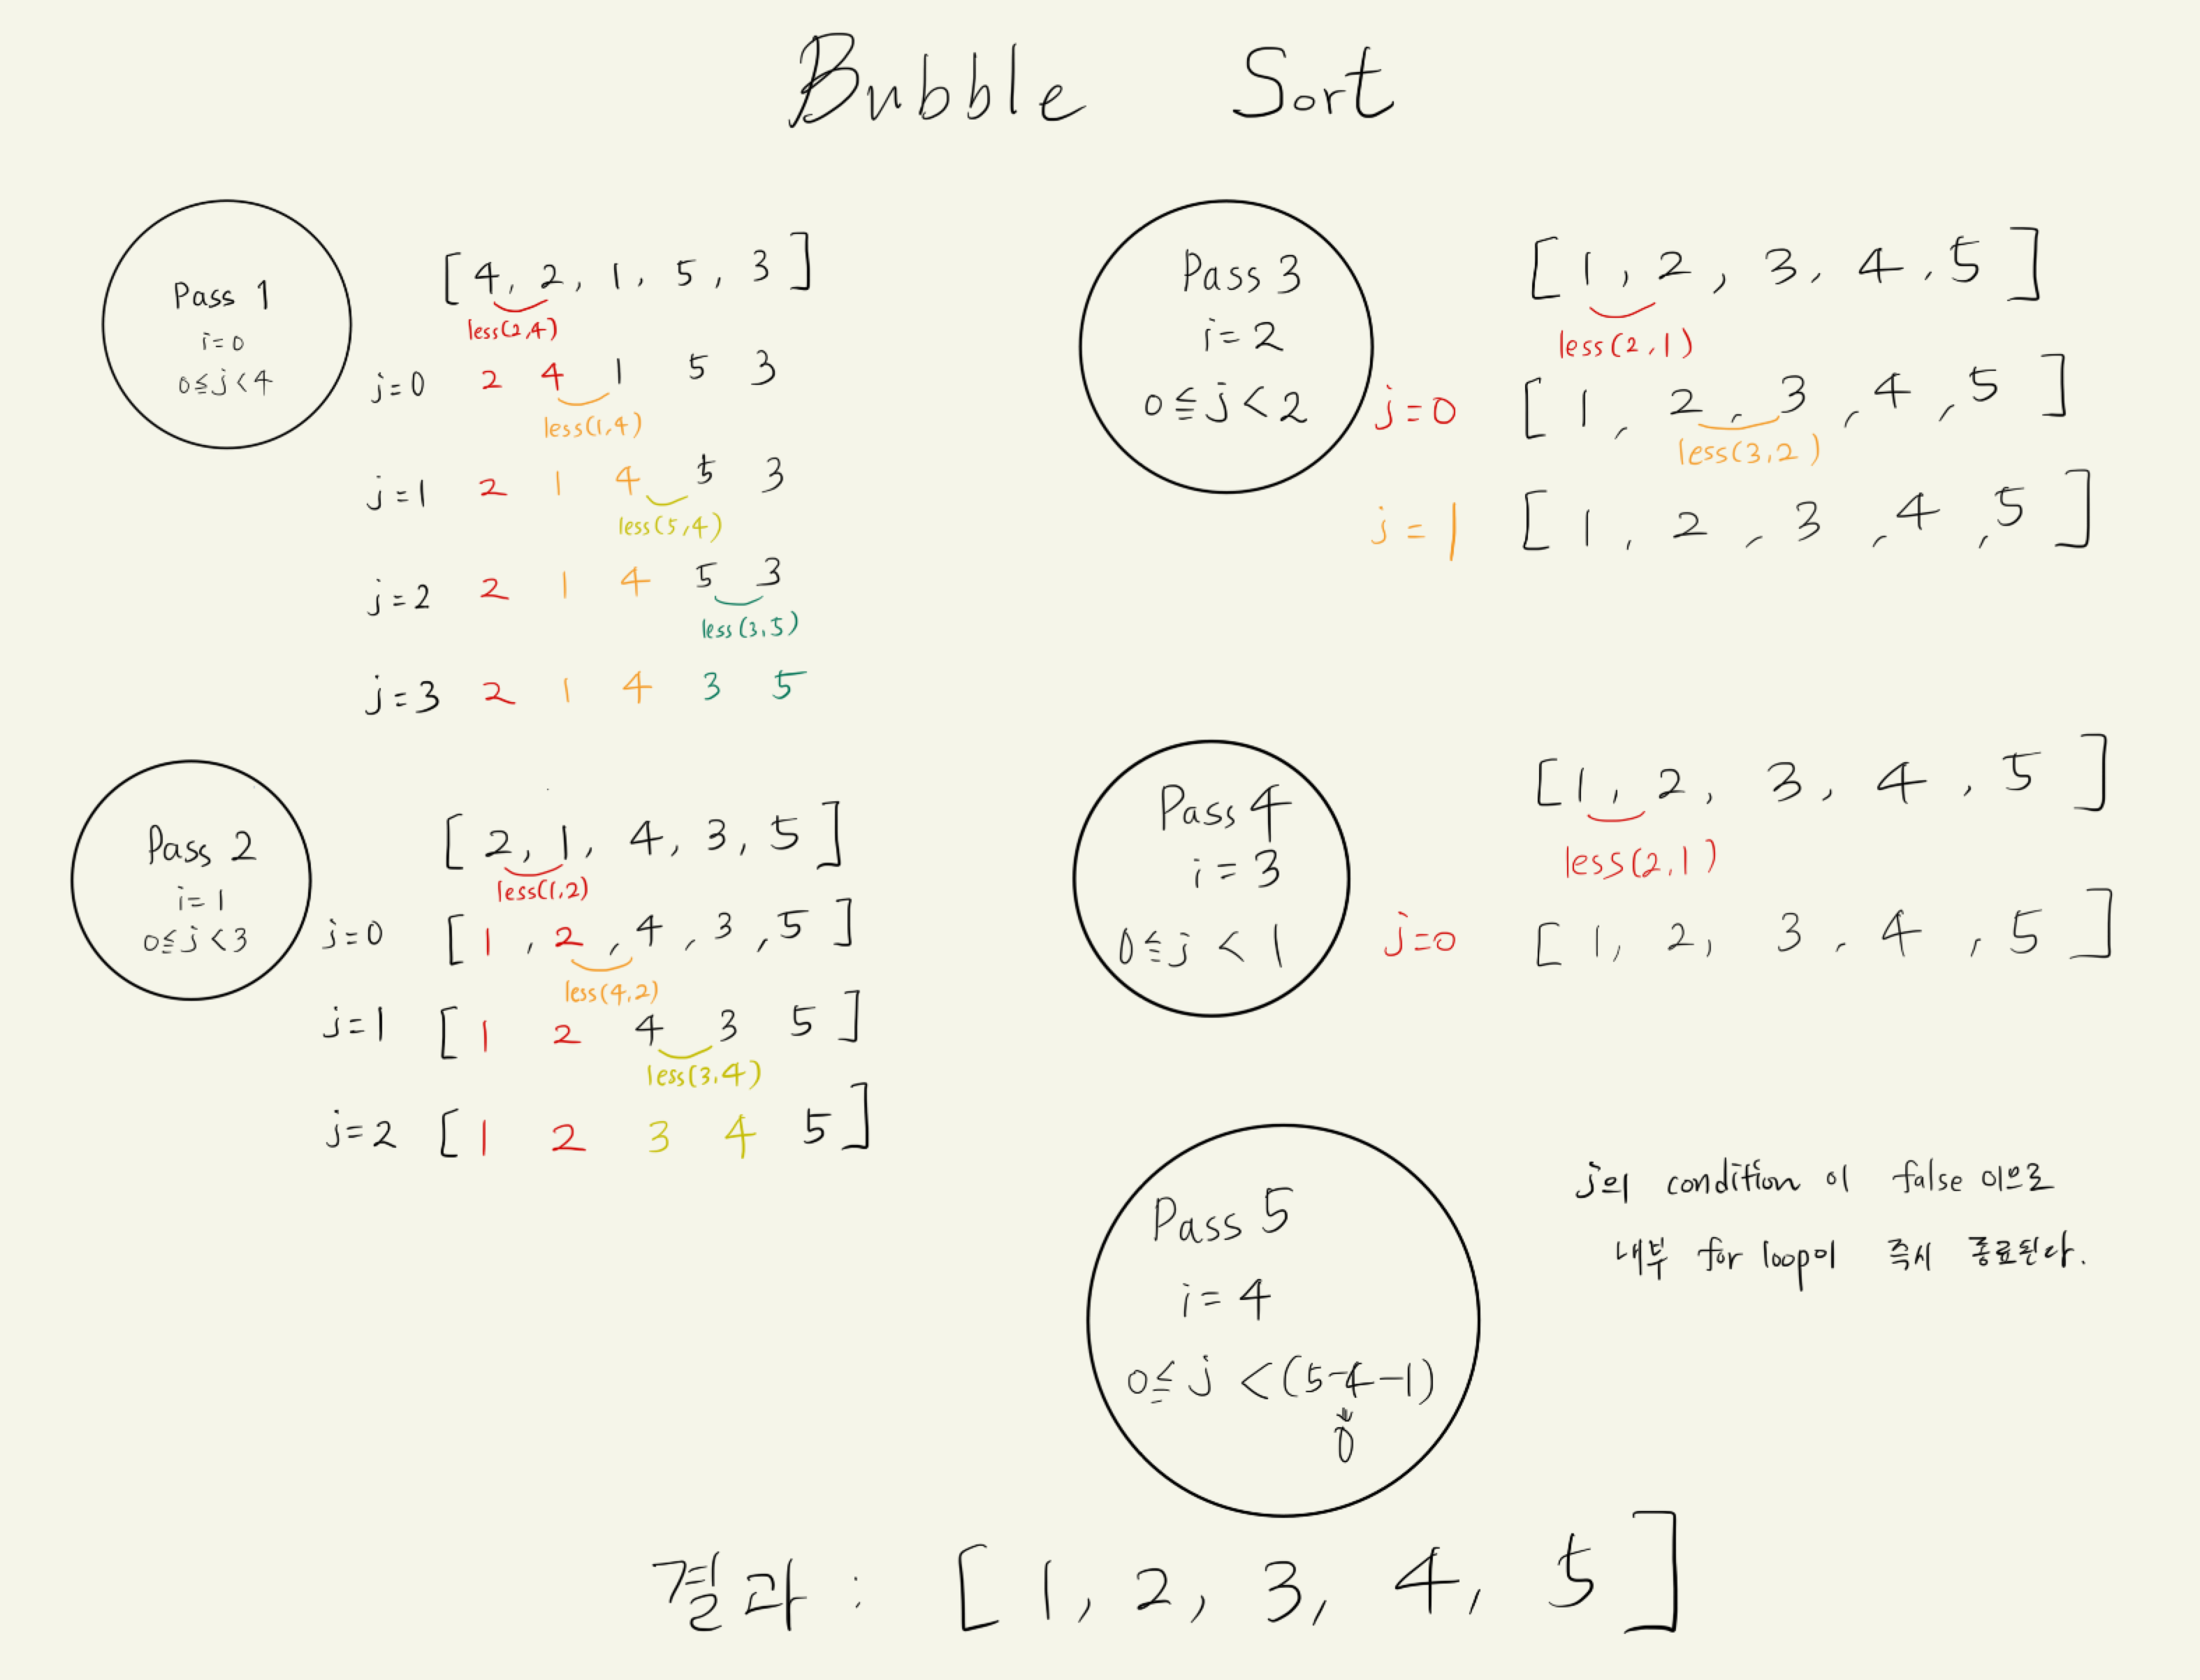 Bubble Sort
Pass 1
i=0
0≤j<4
[4, 2, 1, 5, 3]
less(2,4)
j=0 2 4 1 5 3
less(1,4)
j=1 2 1 4 5 3
less(5,4)
j=2 2 1 4 5 3
less(3,5)
j=3 2 1 4 3 5
Pass 2
i=1
0≤j<3
[2, 1, 4, 3, 5]
less(1,2)
j=0 [1, 2, 4, 3, 5]
less(4,2)
j=1 [1 2 4 3 5]
less(3,4)
j=2 [1 2 3 4 5]
Pass 3
i=2
0≦j<2
[1, 2, 3, 4, 5]
less(2,1)
j=0 [1, 2, 3, 4, 5]
less(3,2)
j=1 [1, 2, 3, 4, 5]
Pass 4
i=3
0≤j<1
[1, 2, 3, 4, 5]
less(2,1)
j=0 [1, 2, 3, 4, 5]
Pass 5
i=4
0≤j<(5-4-1)
0
j의 condition 이 false 이으로
내부 for loop이 즉시 종료된다.
결과 : [1, 2, 3, 4, 5]